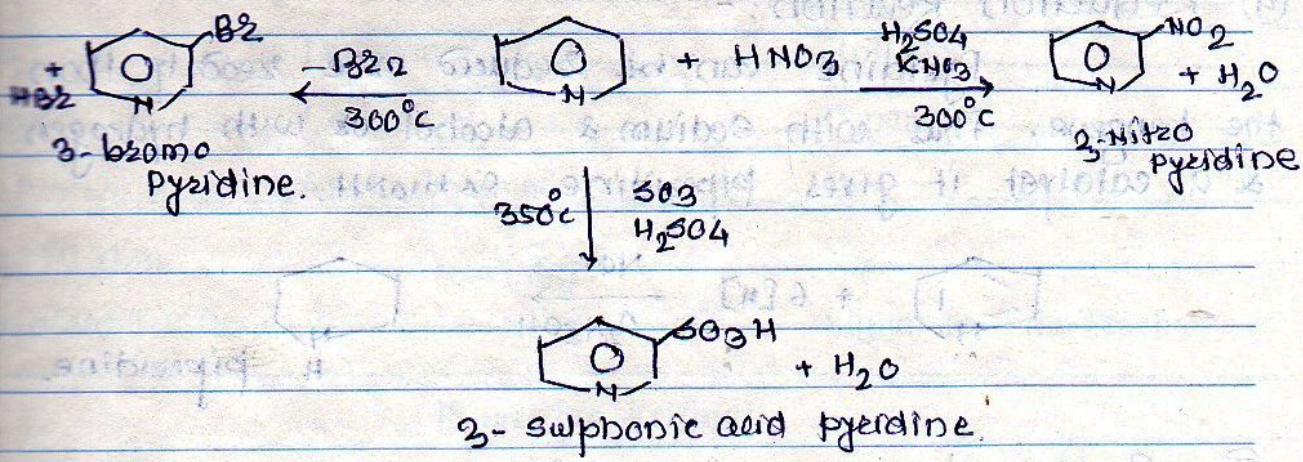 Br NO2
+ HBr N Br2 300°C N + HNO3 H2SO4 KNO3 300°C N + H2O
3-bromo Pyridine. 3-Nitro Pyridine
350°C SO3 H2SO4
SO3H
N + H2O
3- Sulphonic acid pyridine.